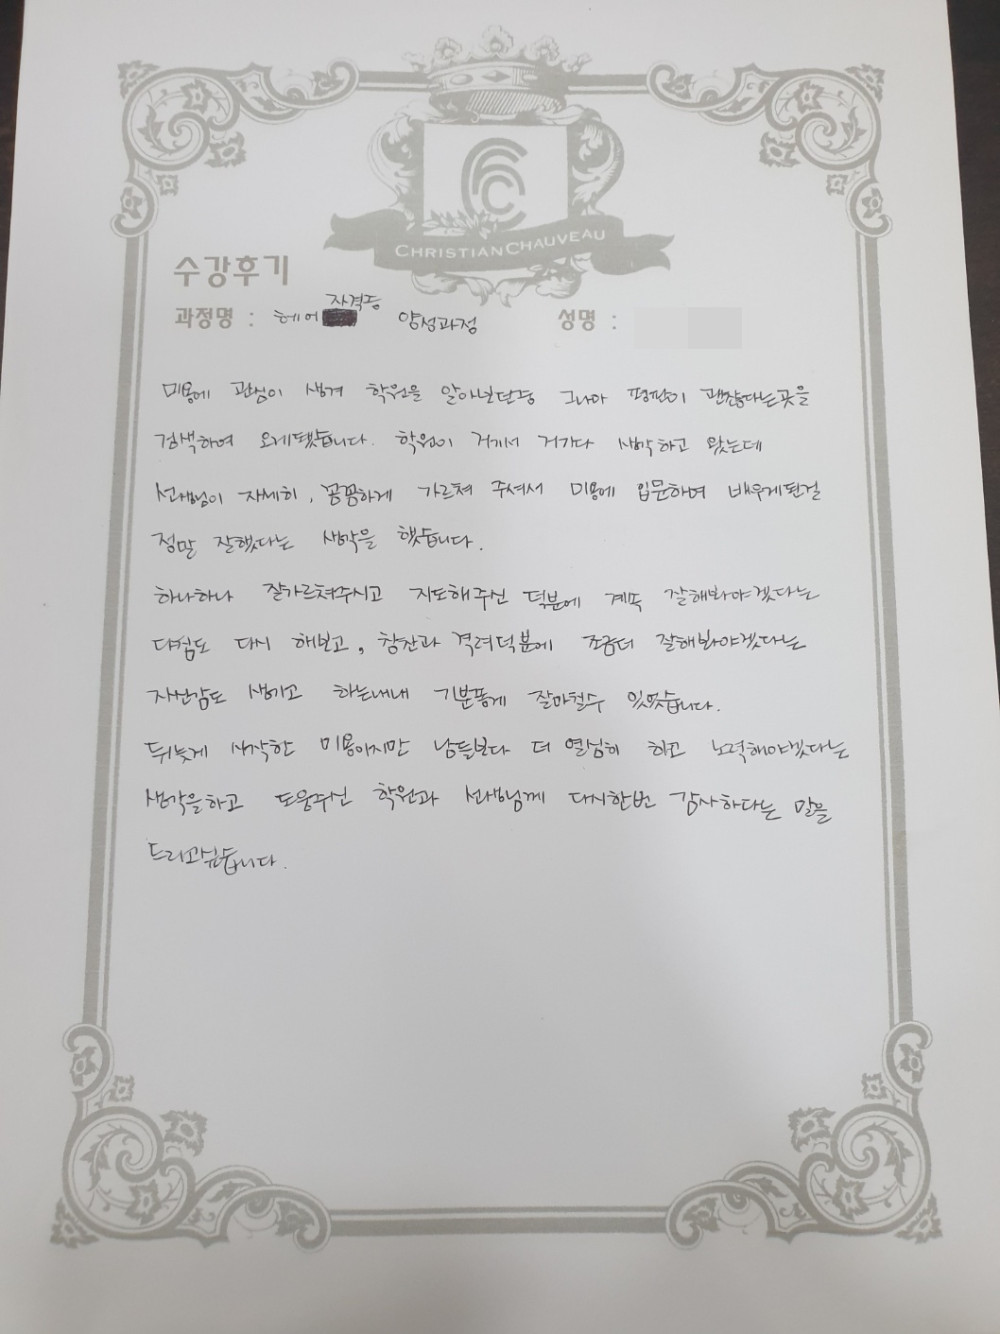 CHRISTIAN CHAUVEAU
수강후기
과정명 : 헤어 자격증 양성과정 성명 :
미용에 관심이 생겨 학원을 알아보던중 그나마 평판이 괜찮다는곳을
검색하여 오게됐습니다. 학원이 거기서 거기다 생각하고 왔는데
선생님이 자세히, 꼼꼼하게 가르쳐 주셔서 미용에 입문하며 배우게된걸
정말 잘했다는 생각을 했습니다.
하나하나 잘가르쳐주시고 지도해주신 덕분에 계속 잘해봐야겠다는
다짐도 다시 해보고, 칭찬과 격려덕분에 조금더 잘해봐야겠다는
자신감도 생기고 하는내내 기분좋게 잘마칠수 있었습니다.
뒤늦게 시작한 미용이지만 남들보다 더 열심히 하고 노력해야겠다는
생각을하고 도움주신 학원과 선생님께 다시한번 감사하다는 말을
드리고싶습니다.